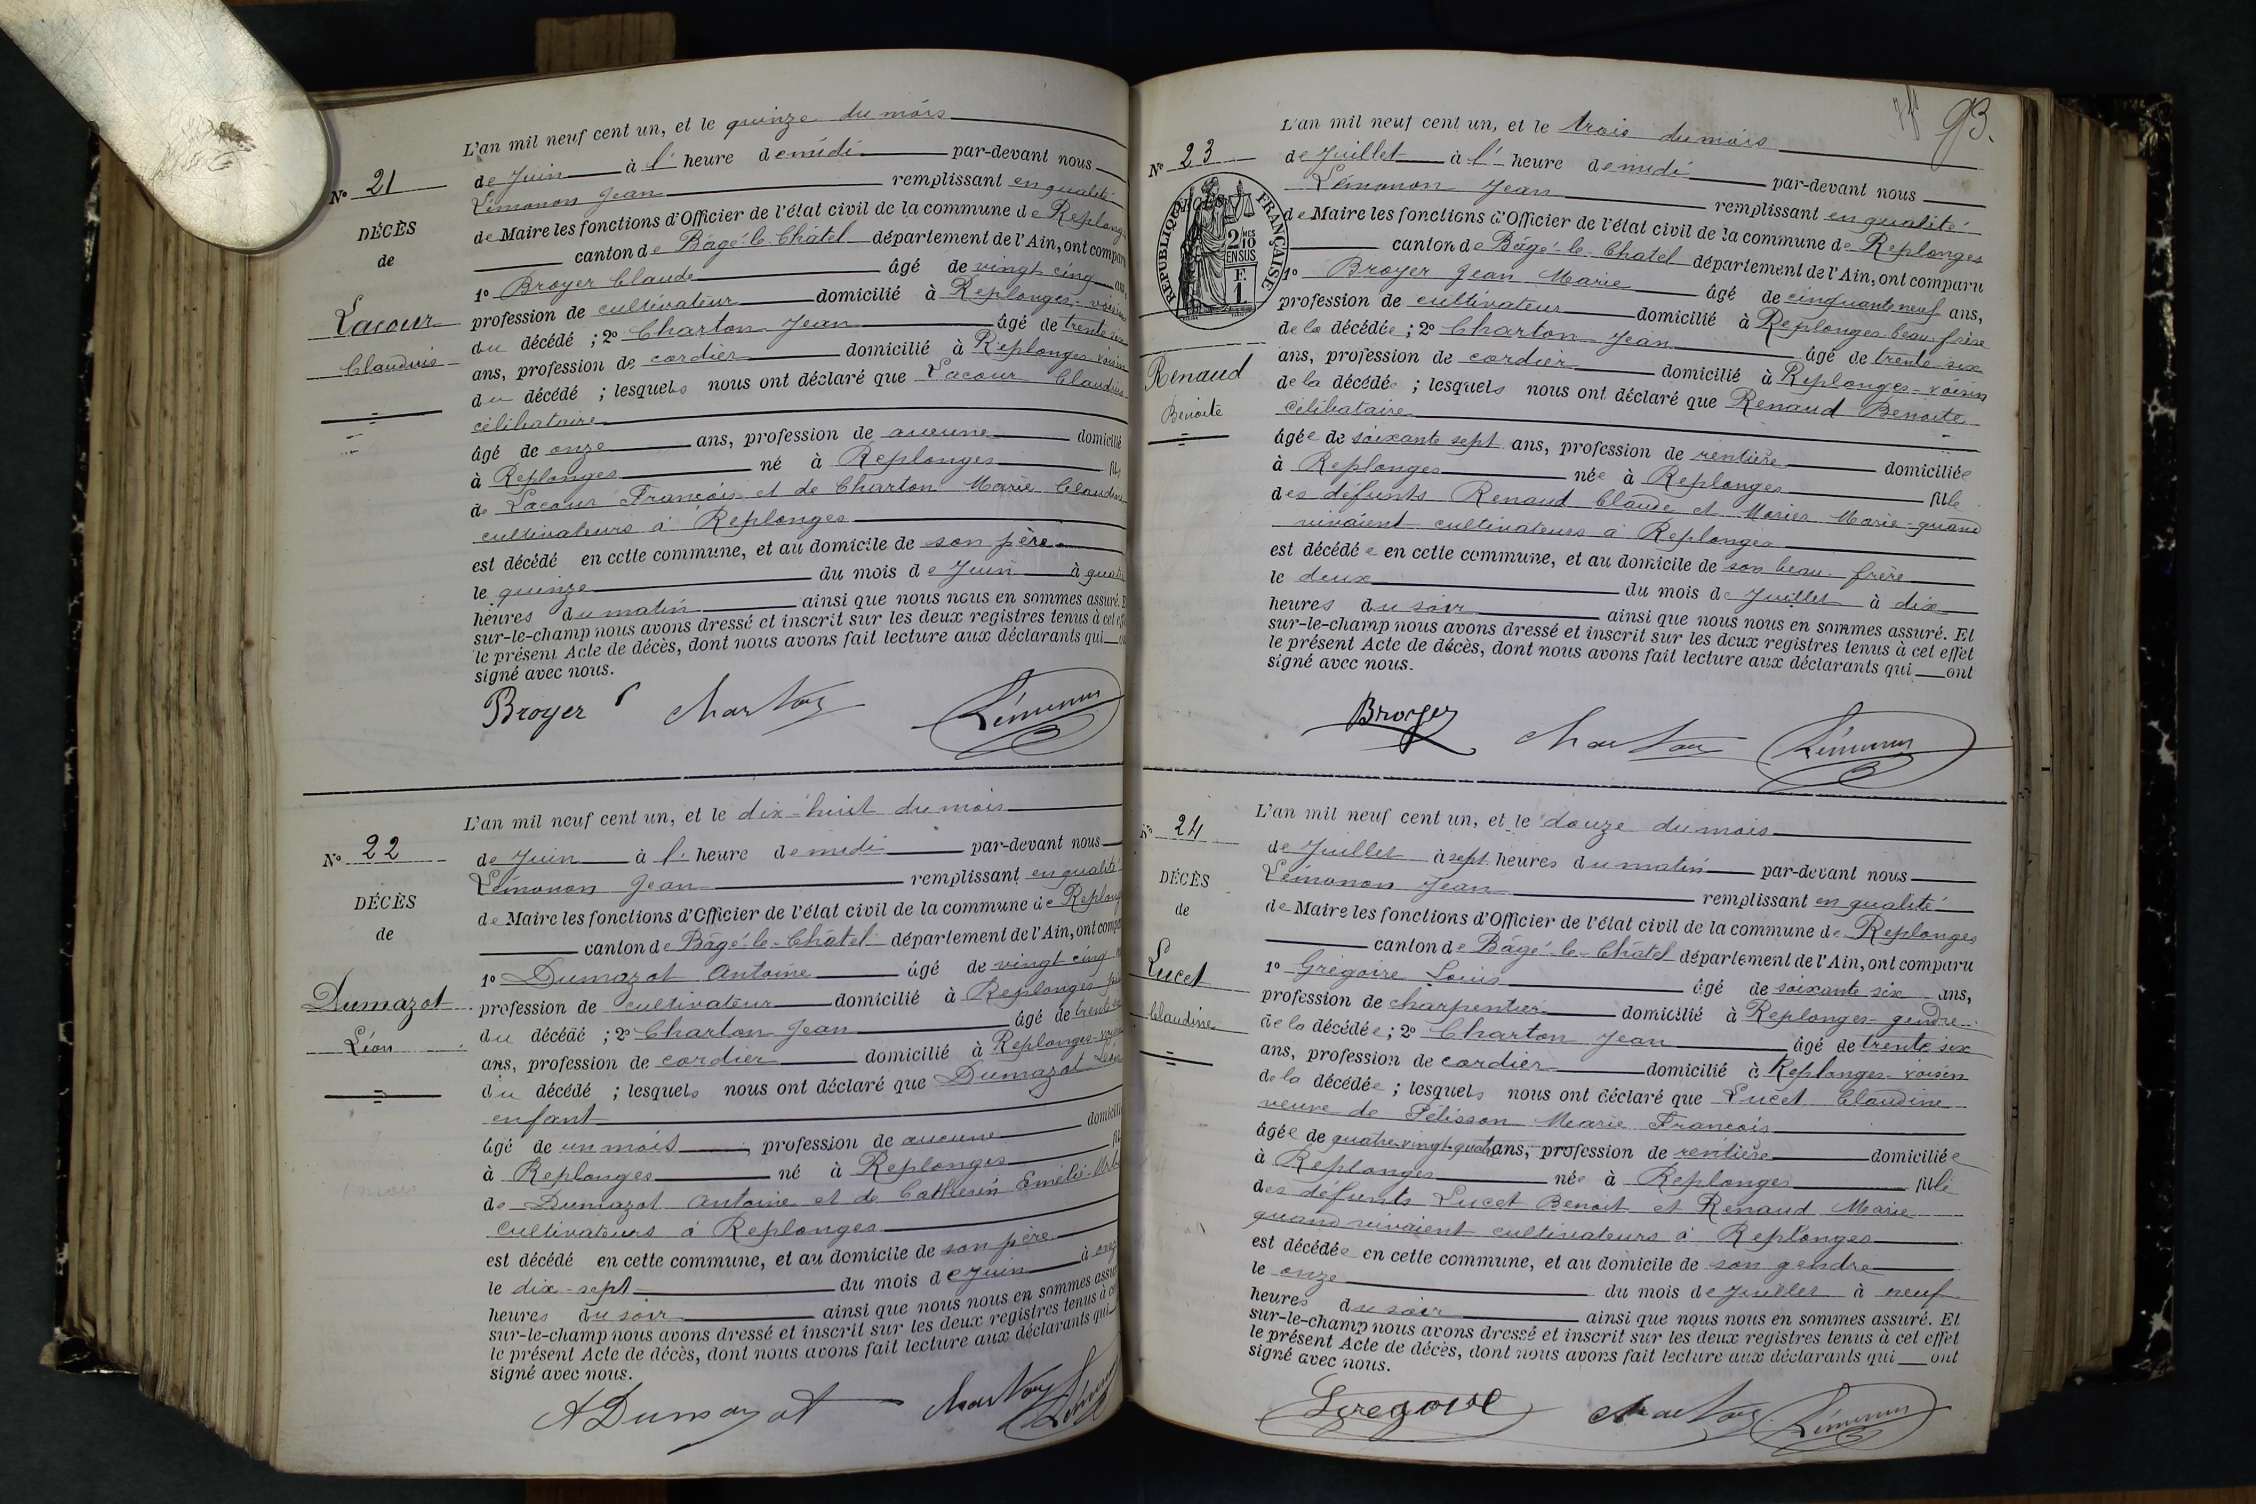 L'an mil neuf cent un, et le quinze du mois
de Juin à l' heure de midi par-devant nous
Lémonon Jean remplissant en qualité
de Maire les fonctions d'Officier de l'état civil de la commune de Replonges
canton de Bâgé-le-Châtel département de l'Ain, ont comparu
1º Broyer Claude âgé de vingt cinq ans,
profession de cultivateur domicilié à Replonges voisin
du décédé ; 2º Charton Jean âgé de trente six
ans, profession de cordier domicilié à Replonges voisin
du décédé ; lesquels nous ont déclaré que Lacour Claudius
célibataire
âgé de onze ans, profession de aucune domicilié
à Replonges né à Replonges fils
de Lacour François et de Charton Marie Claudine
cultivateurs à Replonges
est décédé en cette commune, et au domicile de son père
le quinze du mois de Juin à quatre
heures du matin ainsi que nous nous en sommes assuré. Et
sur-le-champ nous avons dressé et inscrit sur les deux registres tenus à cet effet
le présent Acte de décès, dont nous avons fait lecture aux déclarants qui
signé avec nous.
Nº 21
DÉCÈS
de
Lacour
Claudius
Broyer Charton Lémonon
L'an mil neuf cent un, et le dix-huit du mois
de Juin à l' heure de midi par-devant nous
Lémonon Jean remplissant en qualité
de Maire les fonctions d'Officier de l'état civil de la commune de Replonges
canton de Bâgé-le-Châtel département de l'Ain, ont comparu
1º Dumazot Antoine âgé de vingt cinq
profession de cultivateur domicilié à Replonges père
du décédé ; 2º Charton Jean âgé de trente six
ans, profession de cordier domicilié à Replonges voisin
du décédé ; lesquels nous ont déclaré que Dumazot Léon
enfant
âgé de un mois, profession de aucune domicilié
à Replonges né à Replonges fils
de Dumazot Antoine et de Catherin Emélie
cultivateurs à Replonges
est décédé en cette commune, et au domicile de son père
le dix-sept du mois de Juin à onze
heures du soir ainsi que nous nous en sommes assuré
sur-le-champ nous avons dressé et inscrit sur les deux registres tenus à cet
le présent Acte de décès, dont nous avons fait lecture aux déclarants qui
signé avec nous.
Nº 22
DÉCÈS
de
Dumazot
Léon
A Dumazot Charton Lémonon
93.
L'an mil neuf cent un, et le trois du mois
de Juillet à l' heure de midi par-devant nous
Lémonon Jean remplissant en qualité
de Maire les fonctions d'Officier de l'état civil de la commune de Replonges
canton de Bâgé-le-Chatel département de l'Ain, ont comparu
1º Broyer Jean Marie âgé de cinquante neuf ans,
profession de cultivateur domicilié à Replonges beau-frère
de la décédée ; 2º Charton Jean âgé de trente six
ans, profession de cordier domicilié à Replonges-voisin
de la décédée ; lesquels nous ont déclaré que Renaud Benoite
célibataire
âgée de soixante sept ans, profession de rentière domiciliée
à Replonges née à Replonges fille
des défunts Renaud Claude et Morier Marie quand
vivaient cultivateurs à Replonges
est décédée en cette commune, et au domicile de son beau-frère
le deux du mois de Juillet à dix
heures du soir ainsi que nous nous en sommes assuré. Et
sur-le-champ nous avons dressé et inscrit sur les deux registres tenus à cet effet
le présent Acte de décès, dont nous avons fait lecture aux déclarants qui ont
signé avec nous.
Nº 23
RÉPUBLIQUE FRANÇAISE
2/10 EN SUS
F. 1
Renaud
Benoite
Broyer Charton Lémonon
L'an mil neuf cent un, et le douze du mois
de Juillet à sept heures du matin par-devant nous
Lémonon Jean remplissant en qualité
de Maire les fonctions d'Officier de l'état civil de la commune de Replonges
canton de Bâgé-le-Châtel département de l'Ain, ont comparu
1º Grégoire Louis âgé de soixante six ans,
profession de charpentier domicilié à Replonges-gendre
de la décédée ; 2º Charton Jean âgé de trente six
ans, profession de cordier domicilié à Replonges-voisin
de la décédée ; lesquels nous ont déclaré que Lucet Claudine
veuve de Pélisson Marie François
âgée de quatre vingt-quatre ans, profession de rentière domiciliée
à Replonges née à Replonges fille
des défunts Lucet Benoit et Renaud Marie
quand vivaient cultivateurs à Replonges
est décédée en cette commune, et au domicile de son gendre
le onze du mois de Juillet à neuf
heures du soir ainsi que nous nous en sommes assuré. Et
sur-le-champ nous avons dressé et inscrit sur les deux registres tenus à cet effet
le présent Acte de décès, dont nous avons fait lecture aux déclarants qui ont
signé avec nous.
Nº 24
DÉCÈS
de
Lucet
Claudine
Gregoire Charton Lémonon